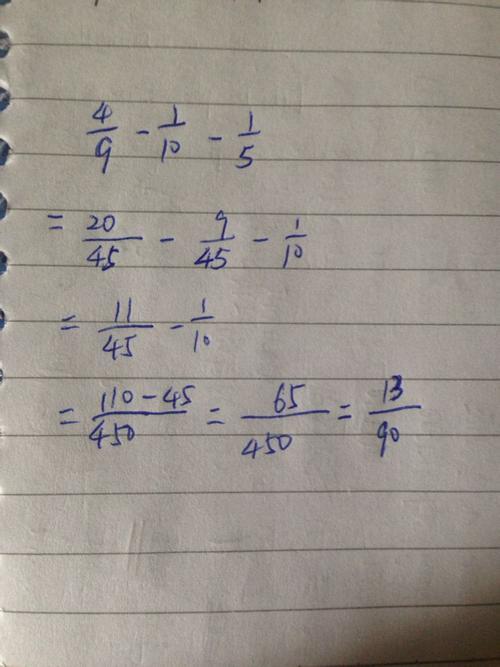 4/9 - 1/10 - 1/5
= 20/45 - 9/45 - 1/10
= 11/45 - 1/10
= 110-45/450 = 65/450 = 13/90